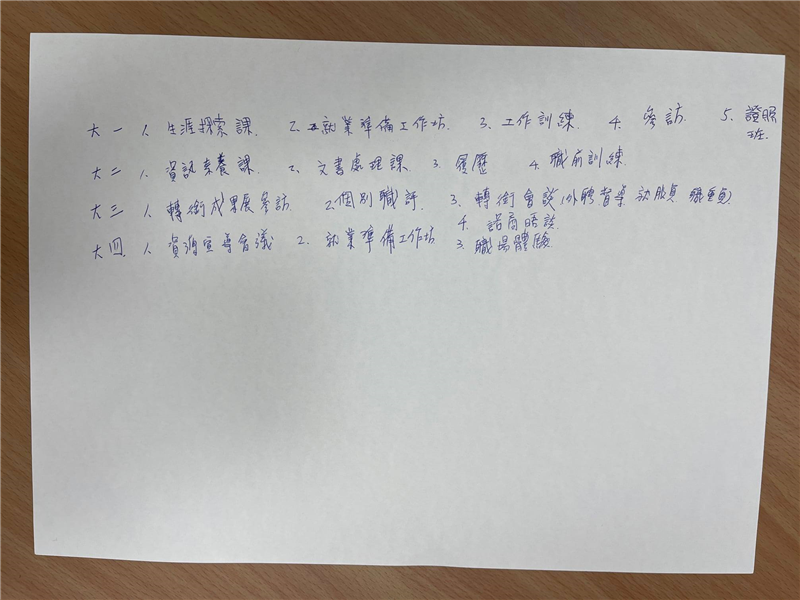 大一 1、生涯探索課. 2、就業準備工作坊. 3、工作訓練. 4、參訪. 5、證照班.
大二 1、資訊素養課. 2、文書處理課. 3、履歷 4、職前訓練.
大三 1、轉銜成果展參訪 2、個別職評. 3、轉銜會談(外聘督導 就服員 職重員)
4、諮商晤談.
大四. 1、資源宣導會議 2、就業準備工作坊 3、職場體驗